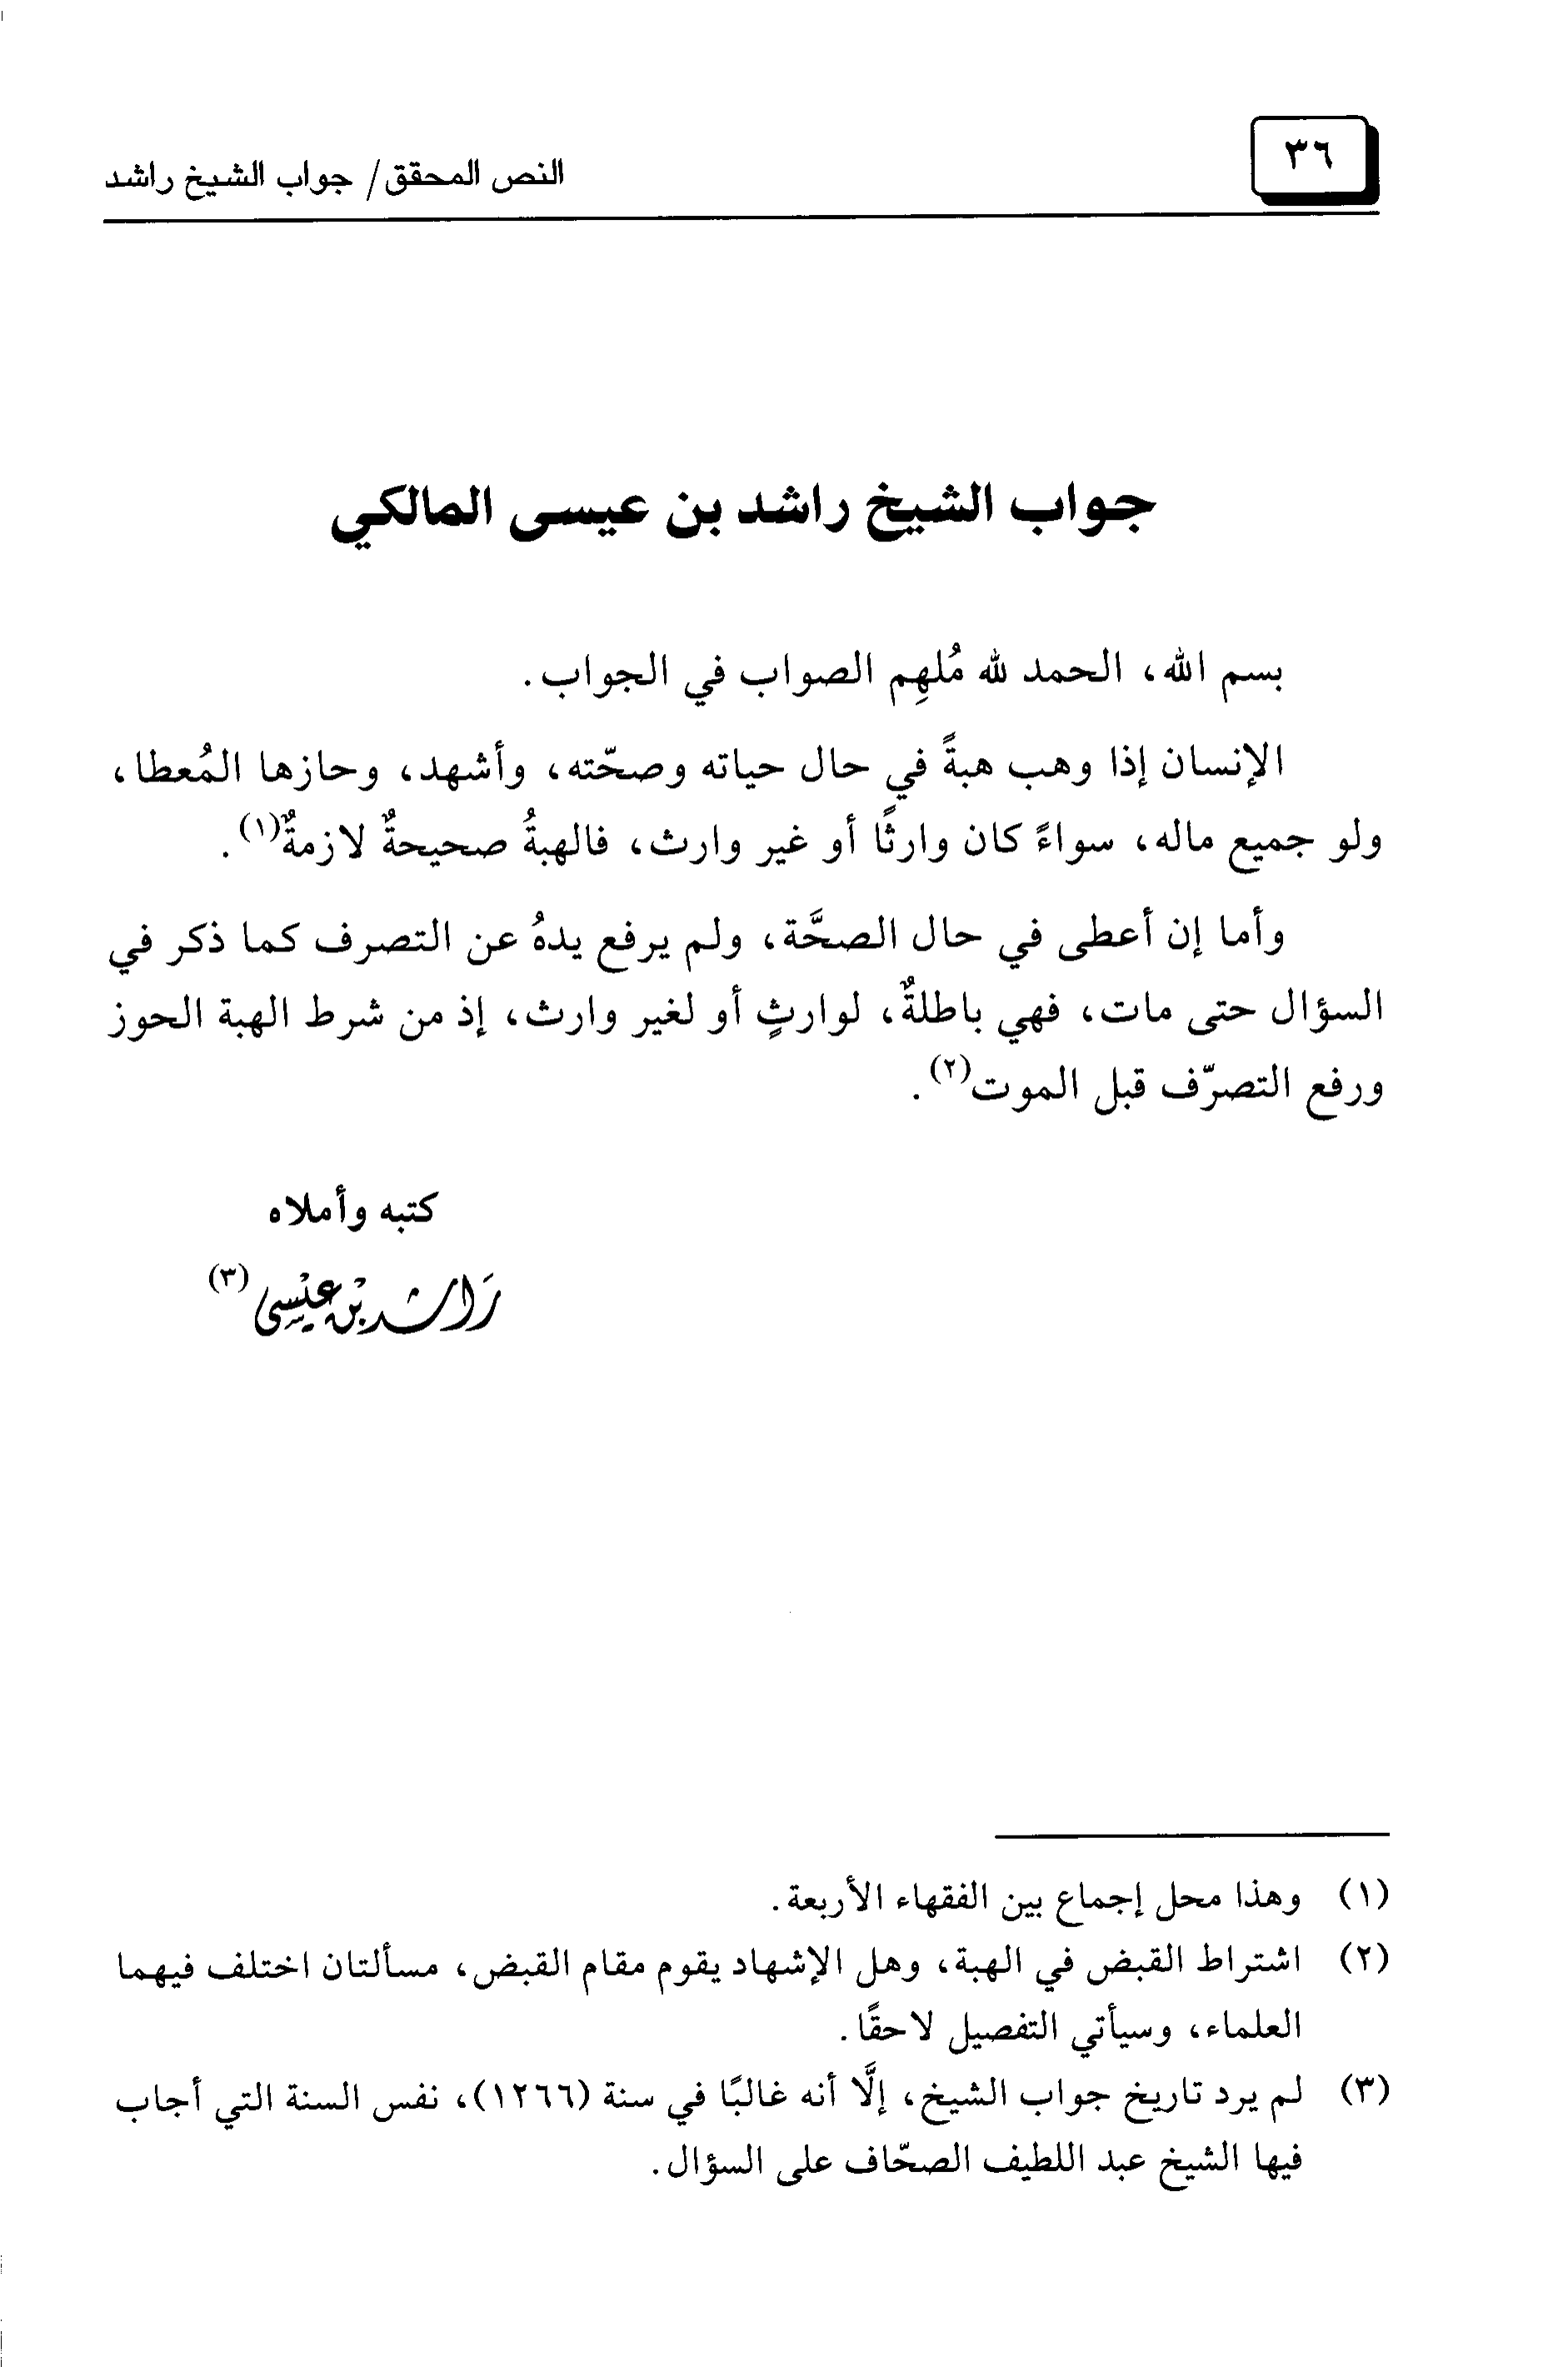 ٣٦
النص المحقق/ جواب الشيخ راشد
جواب الشيخ راشد بن عيسى المالكي
بسم الله، الحمد لله مُلهِم الصواب في الجواب.
الإنسان إذا وهب هبةً في حال حياته وصحّته، وأشهد، وحازها المُعطا،
ولو جميع ماله، سواءً كان وارثًا أو غير وارث، فالهبةُ صحيحةٌ لازمةٌ(١).
وأما إن أعطى في حال الصحَّة، ولم يرفع يدهُ عن التصرف كما ذكر في
السؤال حتى مات، فهي باطلةٌ، لوارثٍ أو لغير وارث، إذ من شرط الهبة الحوز
ورفع التصرّف قبل الموت(٢).
كتبه وأملاه
رَاشد بْن عيْسى(٣)
(١) وهذا محل إجماع بين الفقهاء الأربعة.
(٢) اشتراط القبض في الهبة، وهل الإشهاد يقوم مقام القبض، مسألتان اختلف فيهما
العلماء، وسيأتي التفصيل لاحقًا.
(٣) لم يرد تاريخ جواب الشيخ، إلَّا أنه غالبًا في سنة (١٢٦٦)، نفس السنة التي أجاب
فيها الشيخ عبد اللطيف الصحّاف على السؤال.